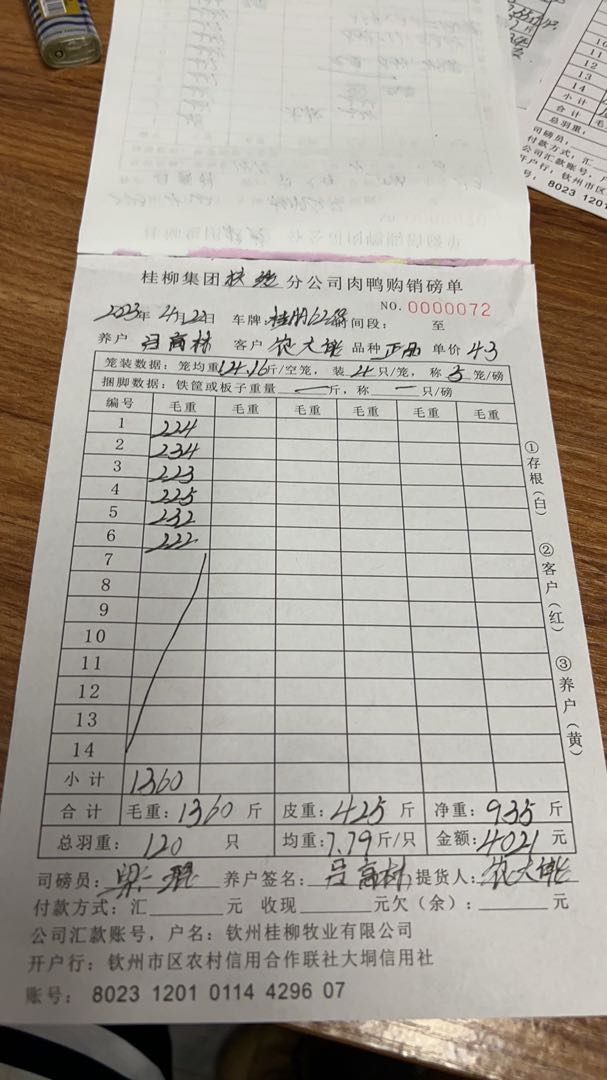 桂柳集团 分公司肉鸭购销磅单
NO. 0000072
2023年 4月22日 车牌: 时间段: 至
养户 吕高林 客户 农大 品种 正品 单价 4.3
笼装数据: 笼均重 14.16 斤/空笼, 装 4 只/笼, 称 5 笼/磅
捆脚数据: 铁筐或板子重量 — 斤, 称 — 只/磅
编号 毛重 毛重 毛重 毛重 毛重
1 224
2 234
3 223
4 225
5 232
6 222
7
8
9
10
11
12
13
14
小计 1360
合计 毛重: 1360 斤 皮重: 425 斤 净重: 935 斤
总羽重: 120 只 均重: 7.79 斤/只 金额: 4021 元
司磅员: 梁 养户签名: 吕高林 提货人: 农大
付款方式: 汇 元 收现 元欠(余): 元
公司汇款账号, 户名: 钦州桂柳牧业有限公司
开户行: 钦州市区农村信用合作联社大垌信用社
账号: 8023 1201 0114 4296 07
①存根(白)
②客户(红)
③养户(黄)
10
11
12
13
14
小计
合计 毛
总羽重:
司磅员:
付款方式: 汇
公司汇款账号, 户
开户行: 钦州市区
号: 8023 1201